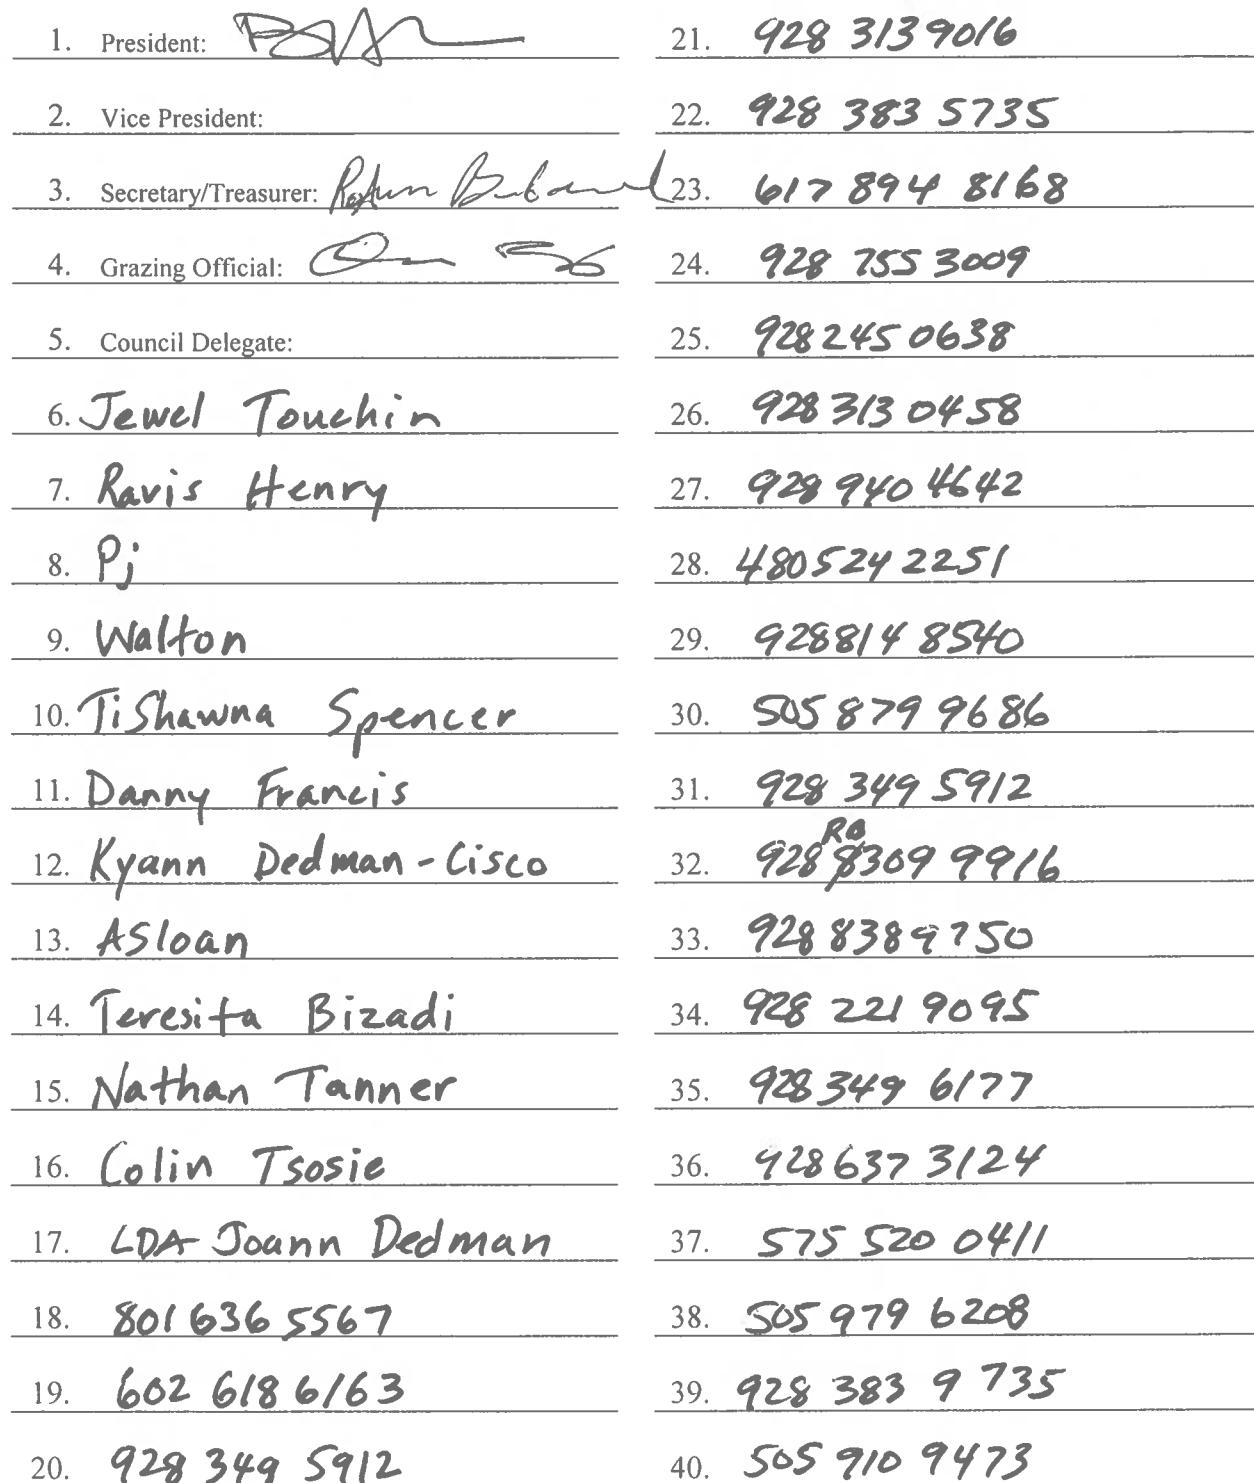 1. President:
2. Vice President:
3. Secretary/Treasurer:
4. Grazing Official:
5. Council Delegate:
6. Jewel Touchin
7. Ravis Henry
8. Pj
9. Walton
10. TiShawna Spencer
11. Danny Francis
12. Kyann Dedman-Cisco
13. ASloan
14. Teresita Bizadi
15. Nathan Tanner
16. Colin Tsosie
17. LDA Joann Dedman
18. 801 636 5567
19. 602 618 6163
20. 928 349 5912
21. 928 313 9016
22. 928 383 5735
23. 617 894 8168
24. 928 755 3009
25. 928 245 0638
26. 928 313 0458
27. 928 940 4642
28. 480 524 2251
29. 928 814 8540
30. 505 879 9686
31. 928 349 5912
RB
32. 928 309 9916
33. 928 838 9750
34. 928 221 9095
35. 928 349 6177
36. 928 637 3124
37. 575 520 0411
38. 505 979 6208
39. 928 383 9735
40. 505 910 9473